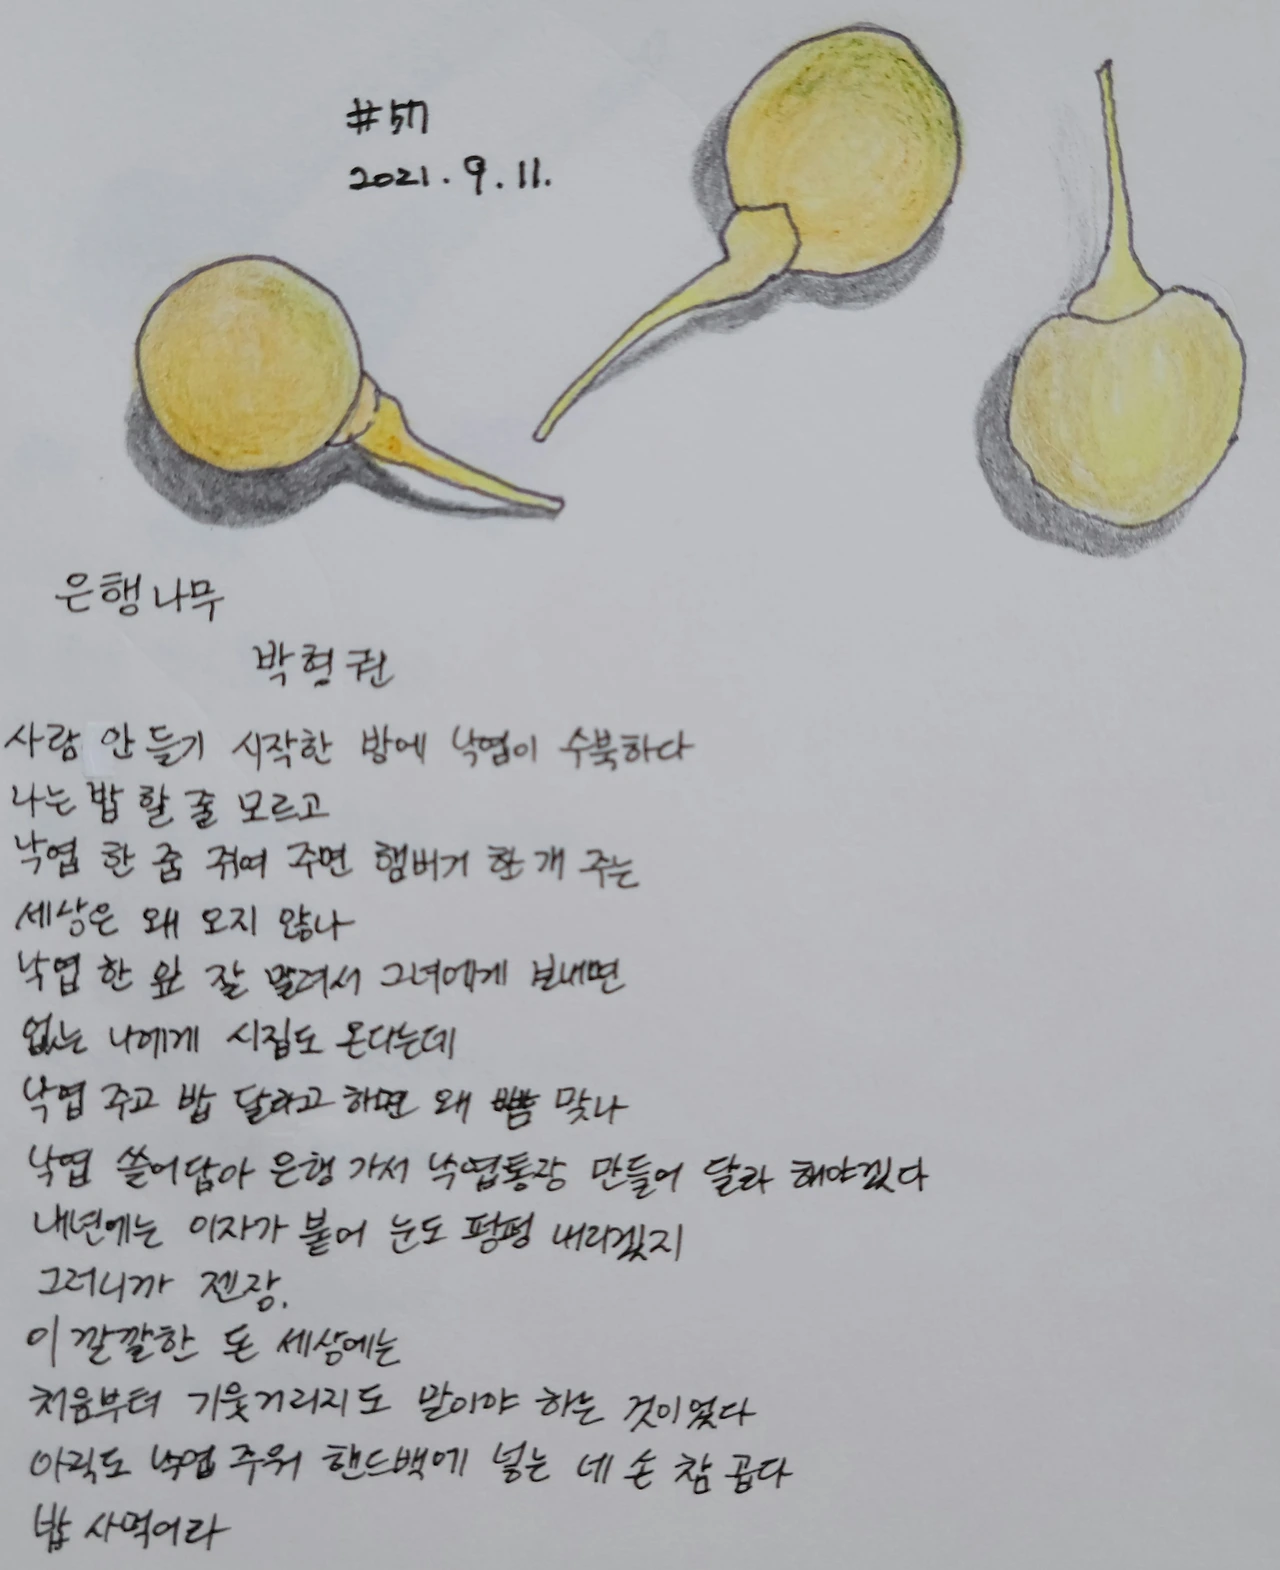 #57
2021. 9. 11.
은행나무
박형권
사람 안 들기 시작한 방에 낙엽이 수북하다
나는 밥 할 줄 모르고
낙엽 한 줌 쥐여 주면 햄버거 한 개 주는
세상은 왜 오지 않나
낙엽 한 잎 잘 말려서 그녀에게 보내면
없는 나에게 시집도 온다는데
낙엽 주고 밥 달라고 하면 왜 뺨 맞나
낙엽 쓸어담아 은행 가서 낙엽통장 만들어 달라 해야겠다
내년에는 이자가 붙어 눈도 펑펑 내리겠지
그러니까 젠장,
이 깔깔한 돈 세상에는
처음부터 기웃거리지도 말아야 하는 것이었다
아직도 낙엽 주워 핸드백에 넣는 네 손 참 곱다
밥 사먹어라